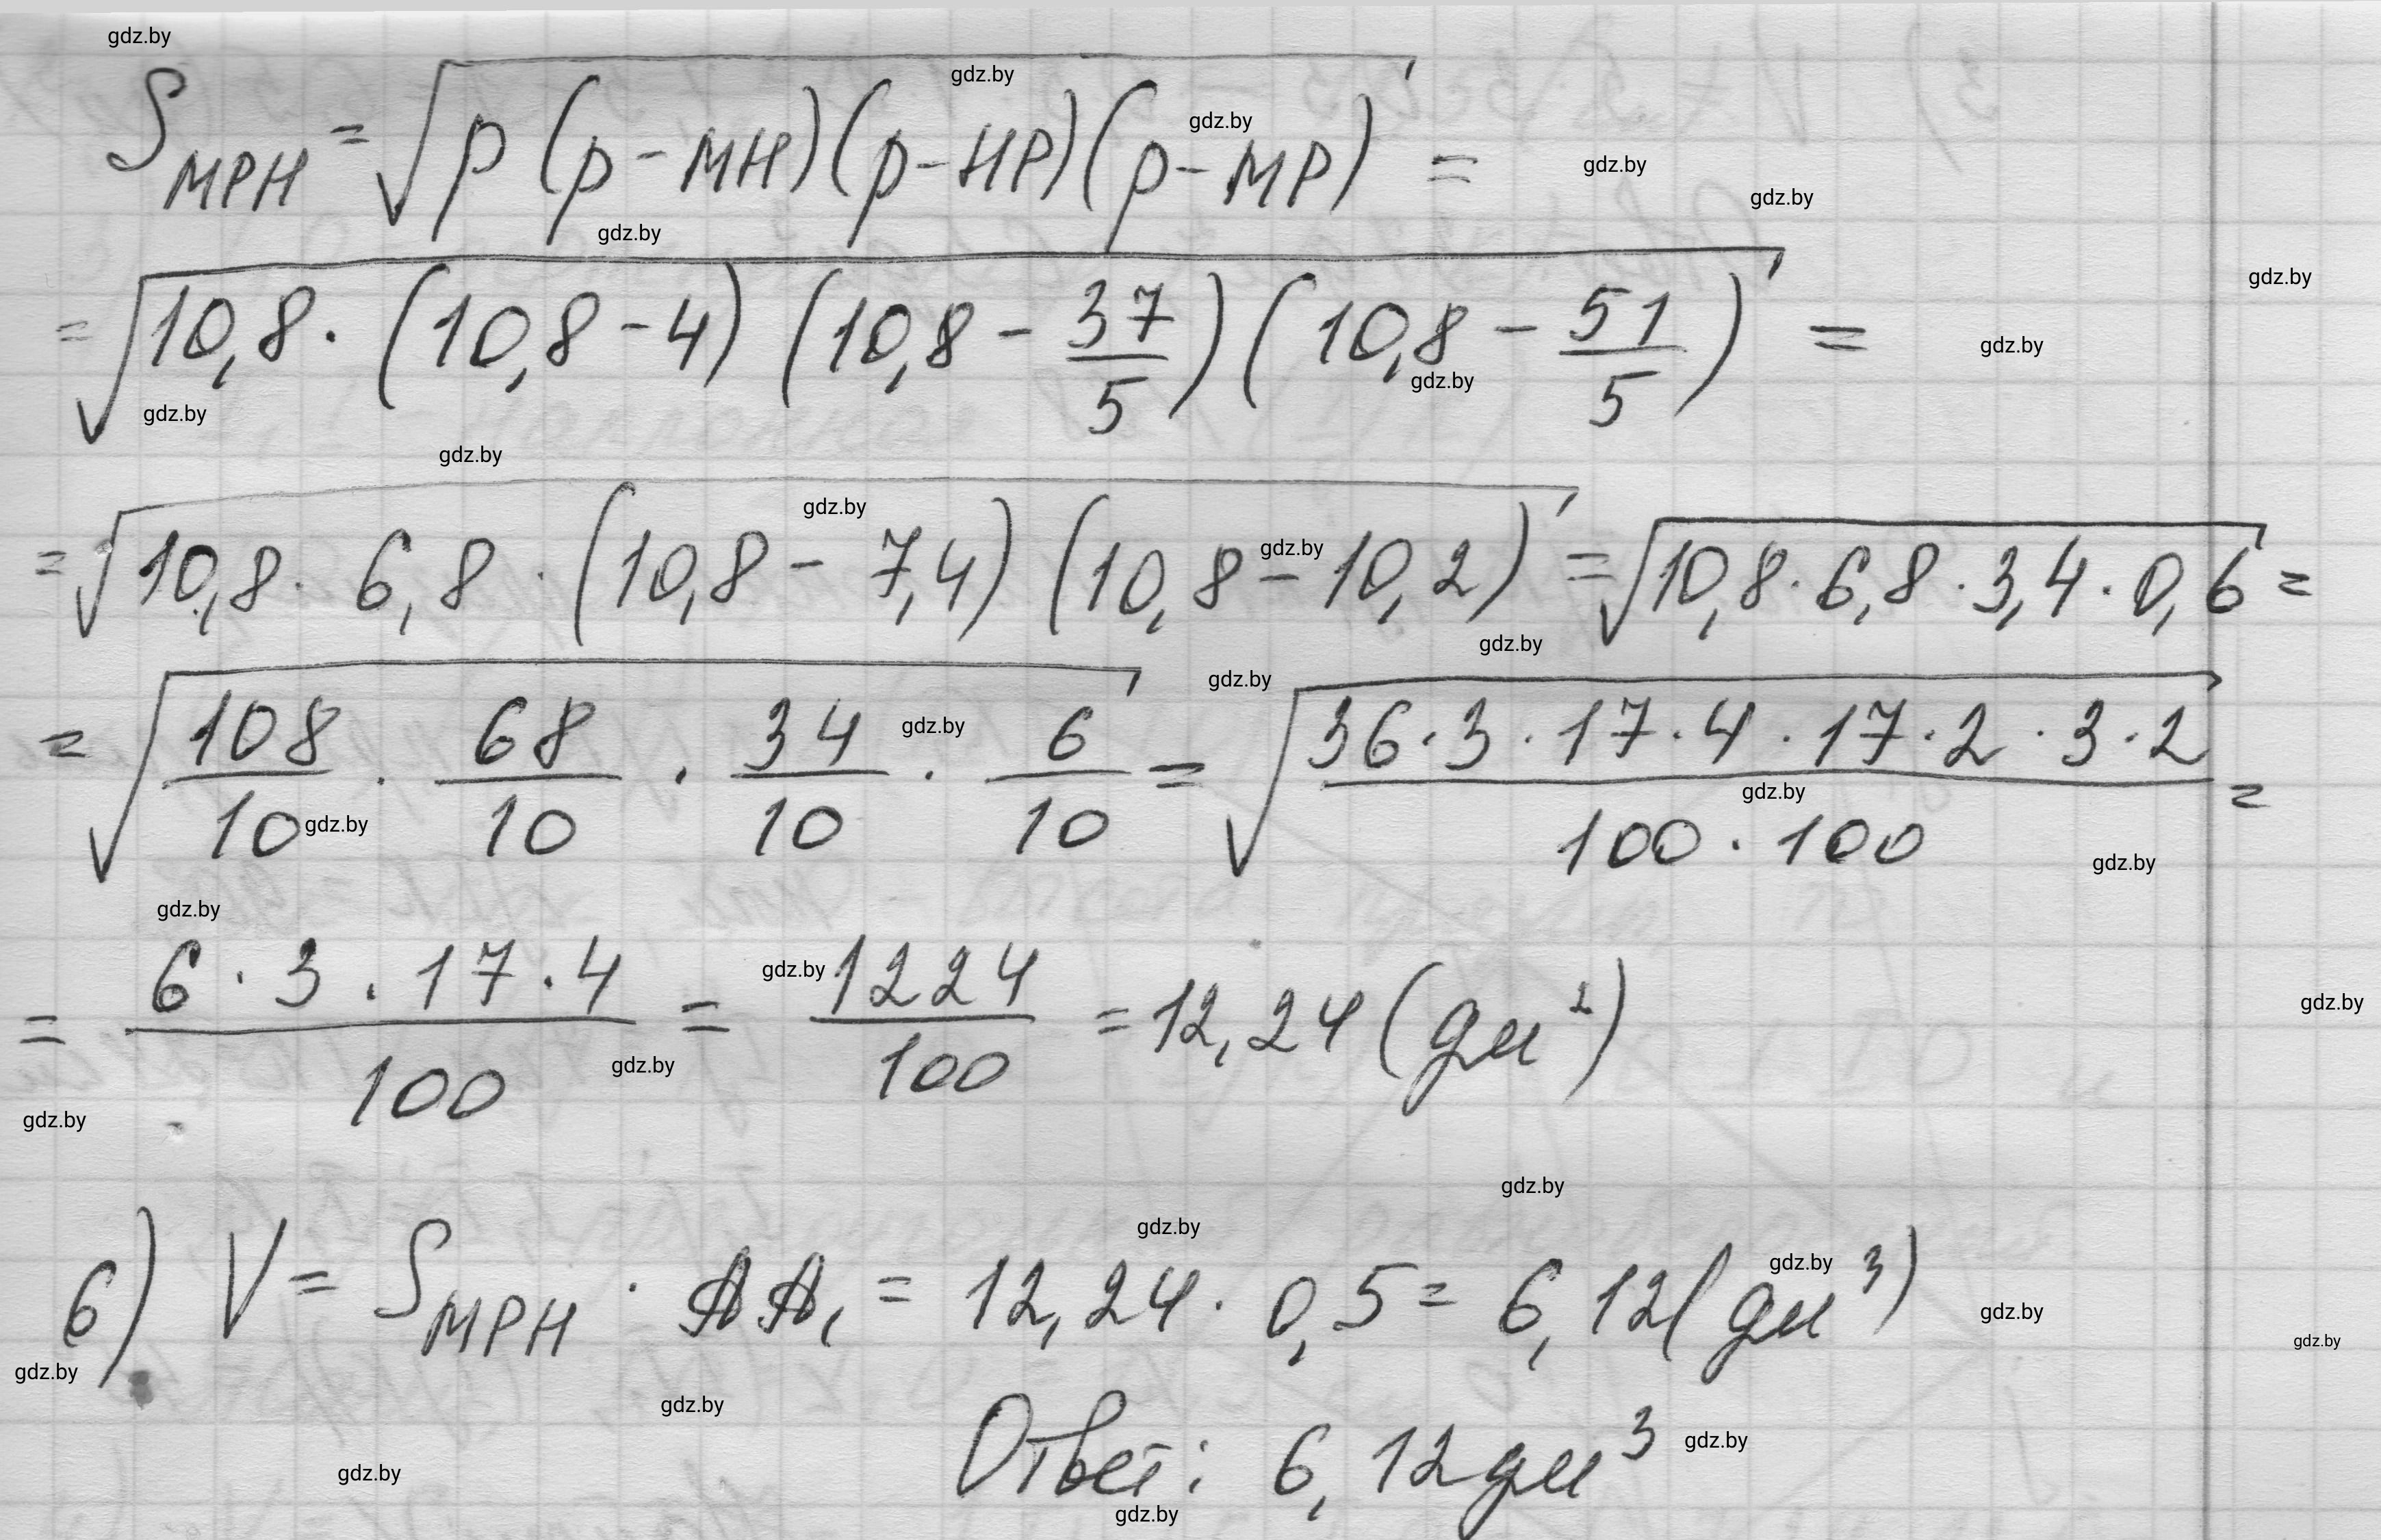 S_MPH = √(p(p-MH)(p-HP)(p-MP)) =
= √(10,8 · (10,8-4)(10,8 - 37/5)(10,8 - 51/5)) =
= √(10,8 · 6,8 · (10,8 - 7,4)(10,8 - 10,2)) = √(10,8 · 6,8 · 3,4 · 0,6) =
= √(108/10 · 68/10 · 34/10 · 6/10) = √((36 · 3 · 17 · 4 · 17 · 2 · 3 · 2)/(100 · 100)) =
= (6 · 3 · 17 · 4)/100 = 1224/100 = 12,24 (дм²)
6) V = S_MPH · AA₁ = 12,24 · 0,5 = 6,12 (дм³)
Ответ: 6,12 дм³
gdz.by